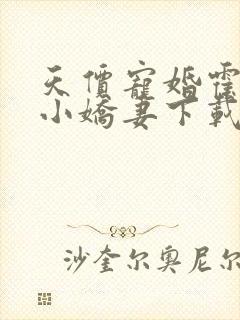 天價寵婚
小嬌妻下載
沙奎尔奥尼尔